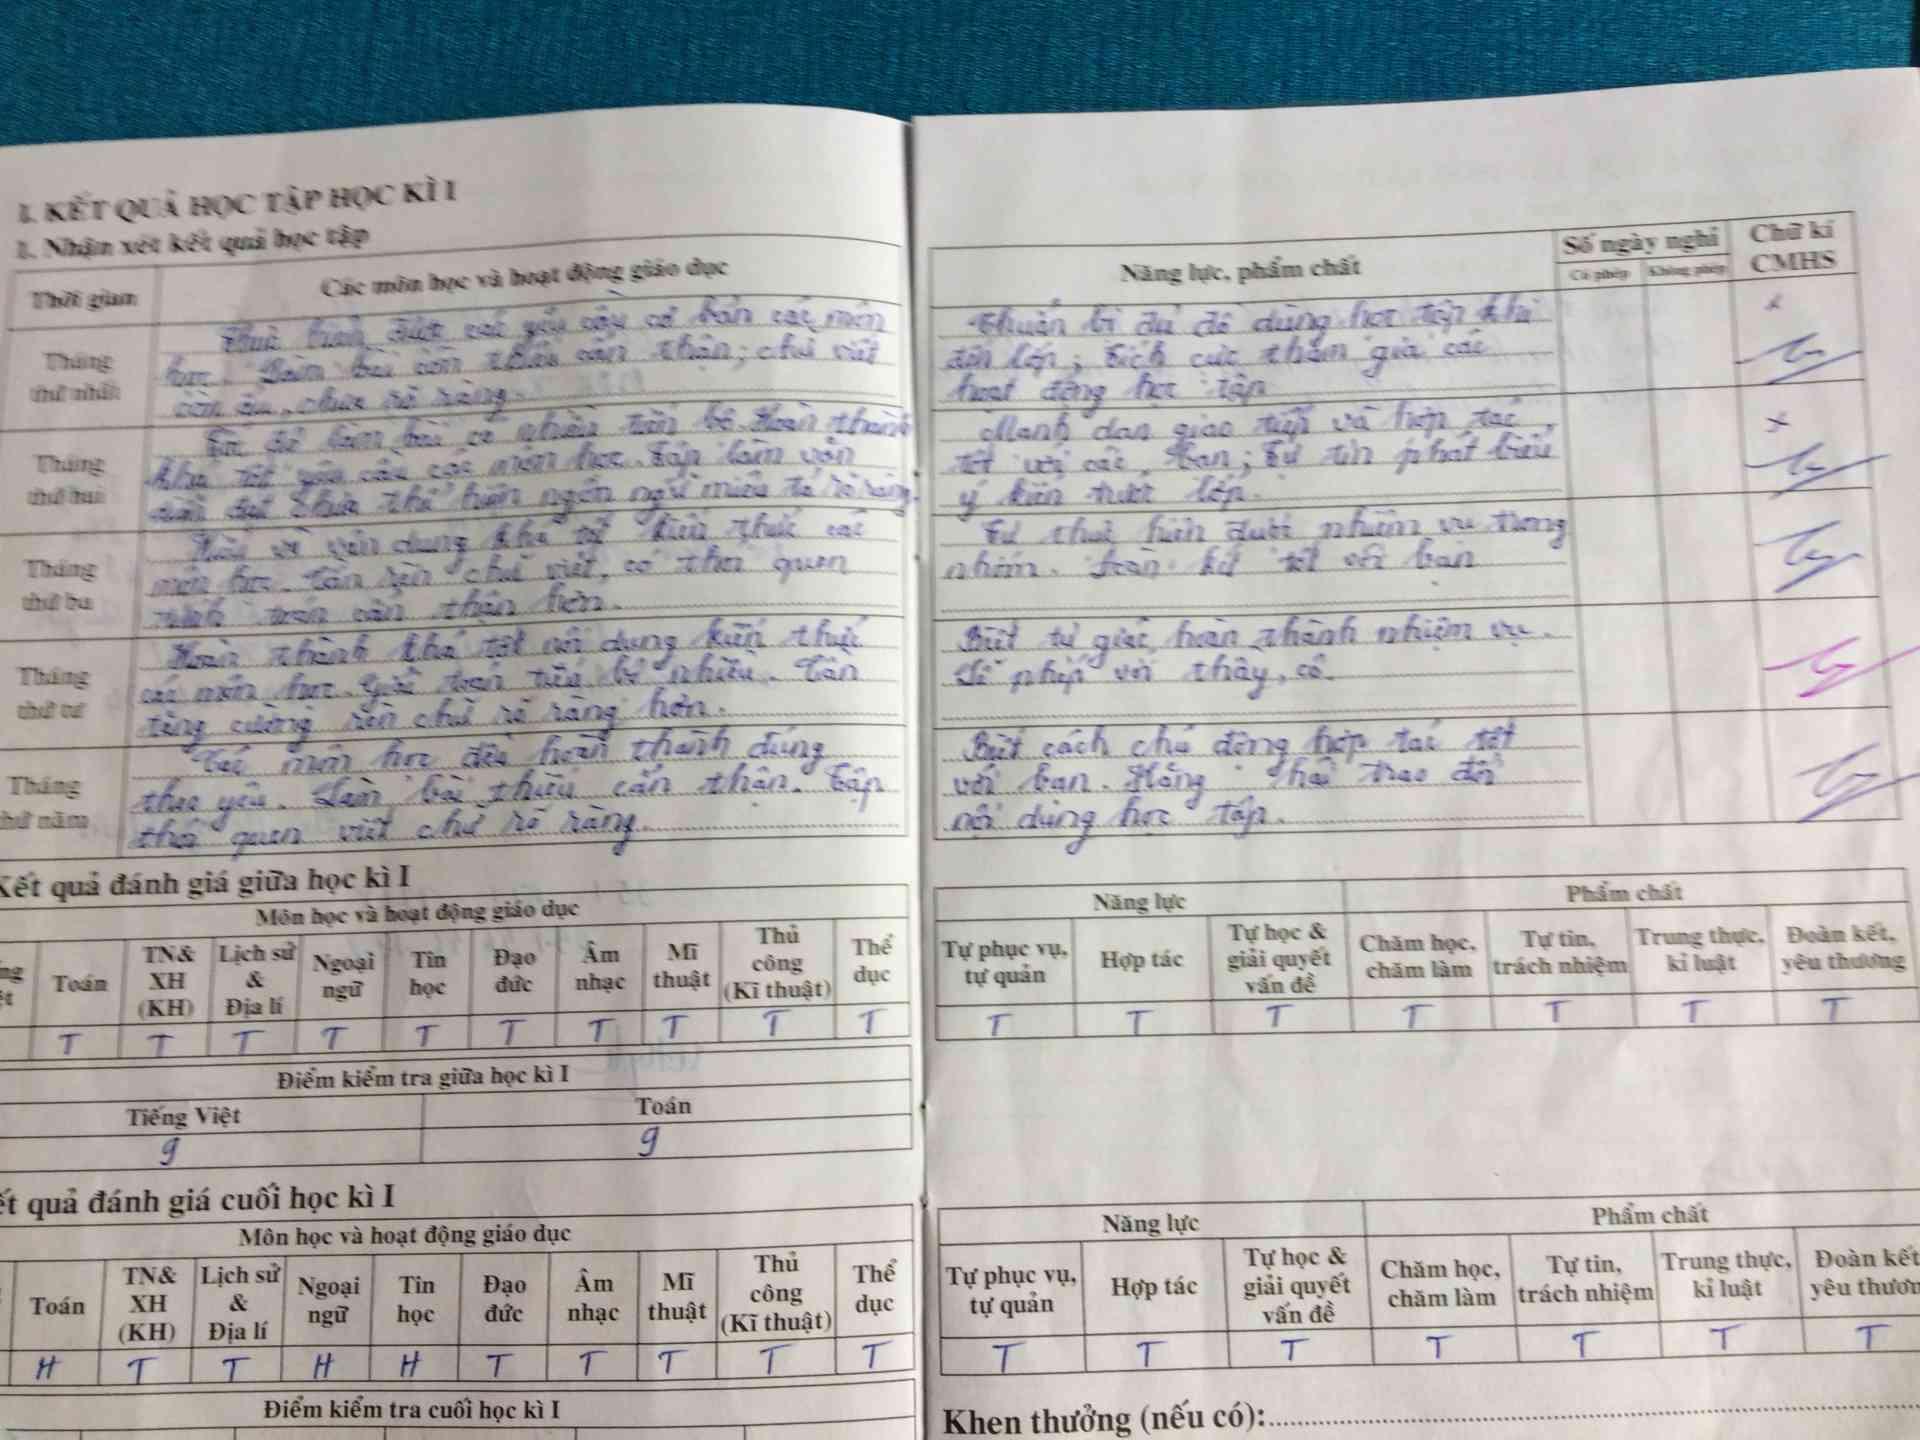 I. KẾT QUẢ HỌC TẬP HỌC KÌ I
1. Nhận xét kết quả học tập
Thời gian
Các môn học và hoạt động giáo dục
Tháng thứ nhất
Thực hiện được các yêu cầu cơ bản các môn
học. Làm bài còn thiếu cẩn thận; chữ viết
còn ẩu, chưa rõ ràng.
Tháng thứ hai
làm bài có nhiều tiến bộ. Hoàn thành
khá tốt yêu cầu các môn học. Tập làm văn
diễn đạt chưa thể hiện ngôn ngữ miêu tả rõ ràng.
Tháng thứ ba
Hiểu và vận dụng khá tốt kiến thức các
môn học. Cần rèn chữ viết, có thói quen
tính toán cẩn thận hơn.
Tháng thứ tư
Hoàn thành khá tốt nội dung kiến thức
các môn học. Giải toán tiến bộ nhiều. Cần
tăng cường rèn chữ rõ ràng hơn.
Tháng thứ năm
Các môn học đều hoàn thành đúng
theo yêu. Làm bài thiếu cẩn thận. Tập
thói quen viết chữ rõ ràng.
Năng lực, phẩm chất
Số ngày nghỉ
Chữ kí
CMHS
Có phép
Không phép
Chuẩn bị đủ đồ dùng học tập khi
đến lớp; tích cực tham gia các
hoạt động học tập
Mạnh dạn giao tiếp và hợp tác
tốt với các bạn; tự tin phát biểu
ý kiến trước lớp.
Tự thực hiện được nhiệm vụ trong
nhóm. Đoàn kết tốt với bạn
Biết tự giác hoàn thành nhiệm vụ.
Lễ phép với thầy, cô.
Biết cách chủ động hợp tác tốt
với bạn. Hăng hái trao đổi
nội dung học tập.
Kết quả đánh giá giữa học kì I
Môn học và hoạt động giáo dục
Toán
TN& XH (KH)
Lịch sử & Địa lí
Ngoại ngữ
Tin học
Đạo đức
Âm nhạc
Mĩ thuật
Thủ công (Kĩ thuật)
Thể dục
T T T T T T T T T T
Điểm kiểm tra giữa học kì I
Tiếng Việt
Toán
9
9
Năng lực
Phẩm chất
Tự phục vụ, tự quản
Hợp tác
Tự học & giải quyết vấn đề
Chăm học, chăm làm
Tự tin, trách nhiệm
Trung thực, kỉ luật
Đoàn kết, yêu thương
T T T T T T T
ết quả đánh giá cuối học kì I
Môn học và hoạt động giáo dục
Toán
TN& XH (KH)
Lịch sử & Địa lí
Ngoại ngữ
Tin học
Đạo đức
Âm nhạc
Mĩ thuật
Thủ công (Kĩ thuật)
Thể dục
H T T H H T T T T T
Điểm kiểm tra cuối học kì I
Năng lực
Phẩm chất
Tự phục vụ, tự quản
Hợp tác
Tự học & giải quyết vấn đề
Chăm học, chăm làm
Tự tin, trách nhiệm
Trung thực, kỉ luật
Đoàn kết yêu thươn
T T T T T T T
Khen thưởng (nếu có):